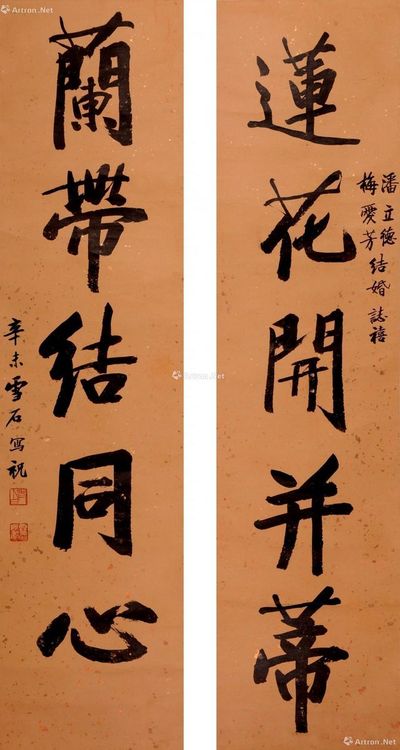 蓮花開并蒂
潘立德
梅愛芳結婚誌禧
蘭帶結同心
辛未雪石寫祝
Artron.Net
Artron.Net
Artron.Net
Artron.Net
Artron.Net